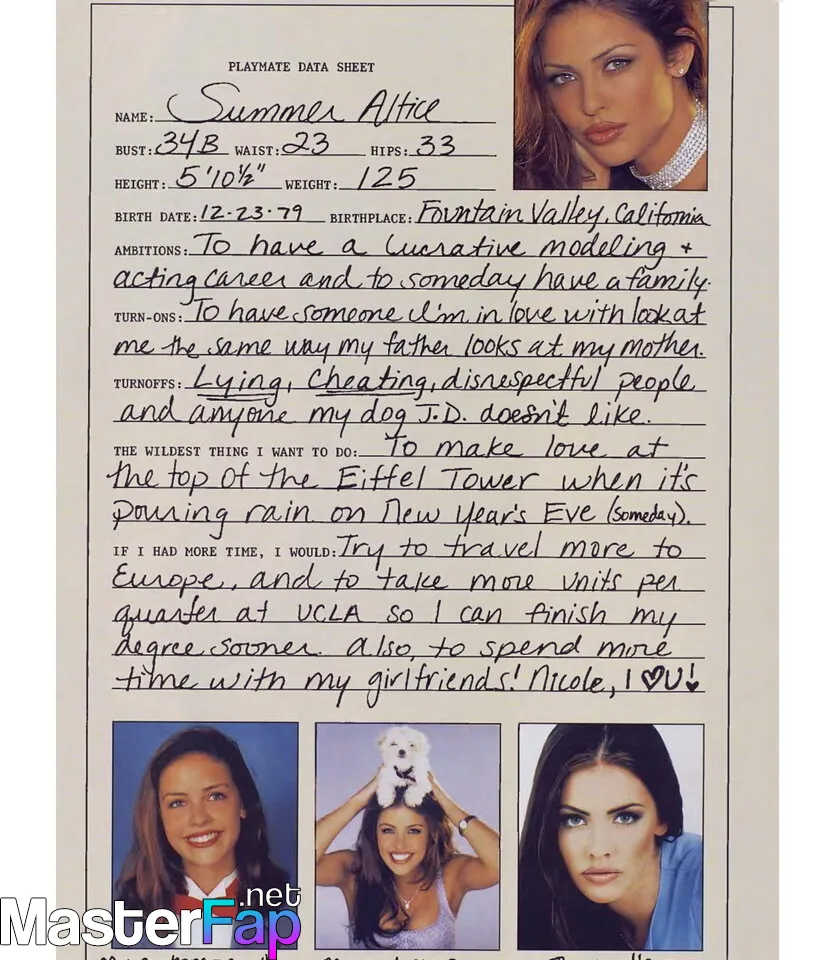 PLAYMATE DATA SHEET
NAME: Summer Altice
BUST: 34B WAIST: 23 HIPS: 33
HEIGHT: 5'10½" WEIGHT: 125
BIRTH DATE: 12-23-79 BIRTHPLACE: Fountain Valley, California
AMBITIONS: To have a lucrative modeling +
acting career and to someday have a family.
TURN-ONS: To have someone I'm in love with look at
me the same way my father looks at my mother.
TURNOFFS: Lying, Cheating, disrespectful people
and anyone my dog J.D. doesn't like.
THE WILDEST THING I WANT TO DO: To make love at
the top of the Eiffel Tower when it's
pouring rain on New Year's Eve (someday).
IF I HAD MORE TIME, I WOULD: Try to travel more to
Europe, and to take more units per
quarter at UCLA so I can finish my
degree sooner. Also, to spend more
time with my girlfriends! Nicole, I ♡ U!
MasterFap.net